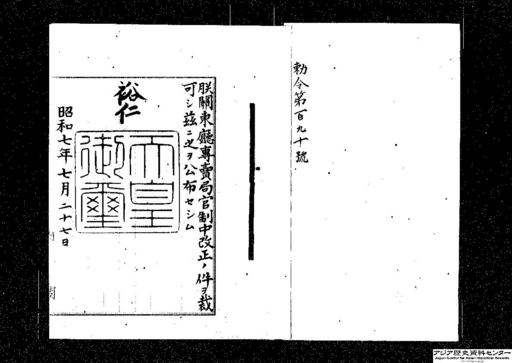 勅令第百九十號
朕關東廳專賣局官制中改正ノ件ヲ裁
可シ茲ニ之ヲ公布セシム
裕仁
天皇
御璽
昭和七年七月二十七日
アジア歴史資料センター
Japan Center for Asian Historical Records